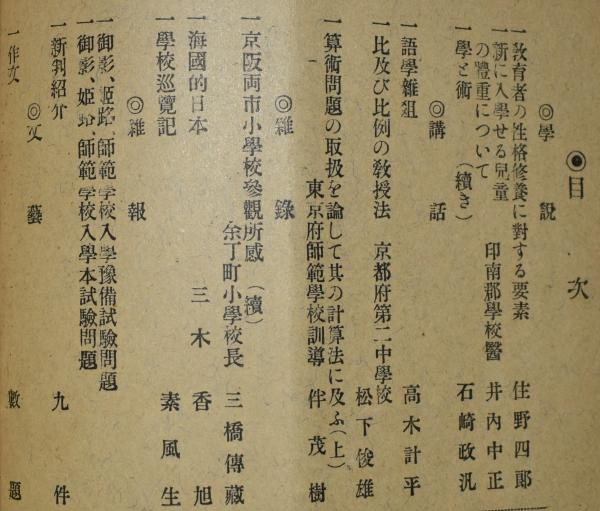 ◉目次
◎學說
一教育者の性格修養に對する要素 住野四郎
一新に入學せる兒童の體重について 印南郡學校醫 井內中正
一學と術(續き) 石崎政汎
◎講話
一語學雜俎 高木計平
一比及び比例の敎授法 京都府第二中學校 松下俊雄
一算術問題の取扱を論して其の計算法に及ふ(上)
東京府師範學校訓導 伴茂樹
◎雜錄
一京阪両市小學校參觀所感(續)
余丁町小學校長 三橋傳藏
一海國的日本 三木香旭
一學校巡覽記 素風生
◎雜報
一御影、姬路、師範學校入學豫備試驗問題
一御影、姬路、師範學校入學本試驗問題
一新刋紹介 九件
◎文藝
一作文 數題